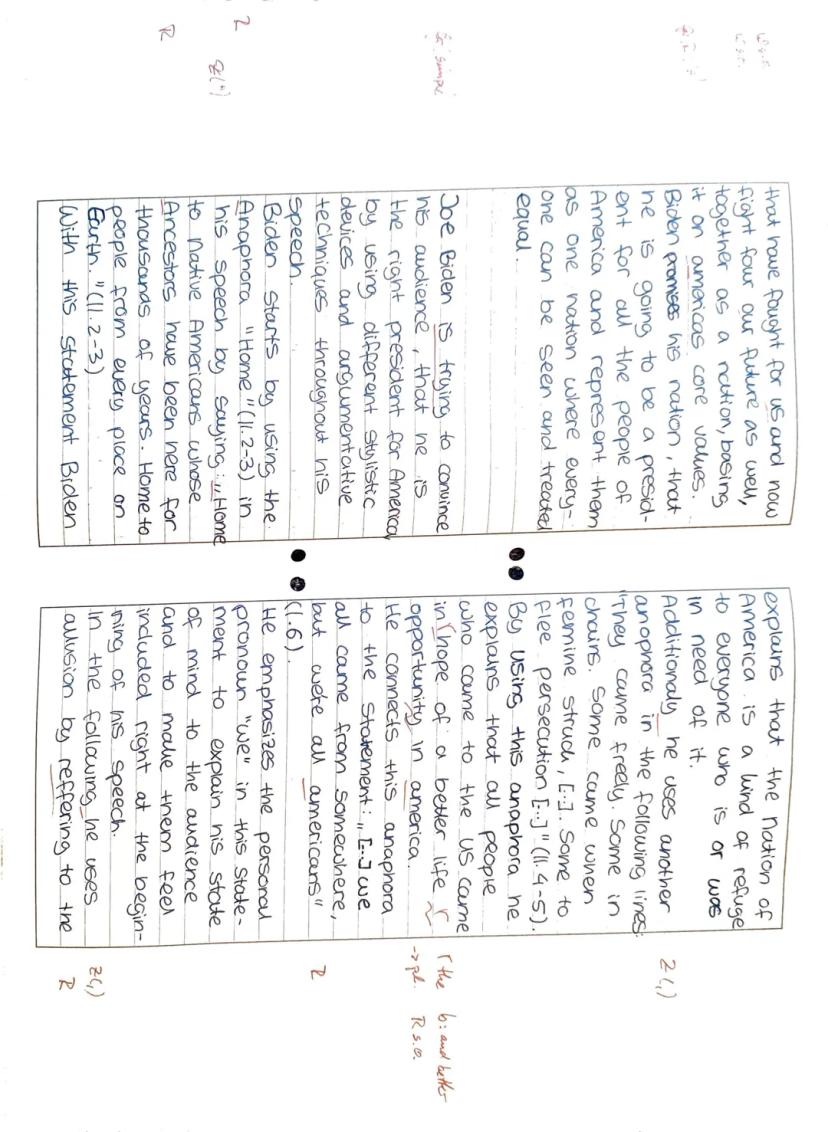 that have fought for us and now
fight four our future as well,
together as a nation, basing
it on americas core values.
Biden promises his nation, that
he is going to be a presid-
ent for all the people of
America and represent them
as one nation where every-
one can be seen and treated
equal.
Joe Biden is trying to convince
his audience, that he is
the right president for America
by using different stylistic
devices and argumentative
techniques throughout his
speech.
Biden starts by using the
Anaphora "Home" (ll. 2-3) in
his speech by saying: „Home
to native Americans whose
Ancestors have been here for
thousands of years. Home to
people from every place on
Earth." (ll. 2-3)
With this statement Biden
Gr. simple
Z
Z(")
R
explains that the nation of
America is a kind of refuge
to everyone who is or was
in need of it.
Additionaly he uses another
anaphora in the following lines:
"They came freely. Some in
chains. Some came when
femine struck, [...]. Some to
flee persecution [...]" (ll. 4-5).
By using this anaphora he
explains that all people
who came to the US came
in hope of a better life
opportunity in america.
He connects this anaphora
to the statement: „ [...] we
all came from somewhere,
but we're all americans"
(l. 6).
He emphasizes the personal
pronoun "we" in this state-
ment to explain his state
of mind to the audience
and to make them feel
included right at the begin-
ning of his speech.
In the following he uses
allusion by reffering to the
Z(,)
Γ the b: and better
-> pl. R s.o.
R
Z(,)
R